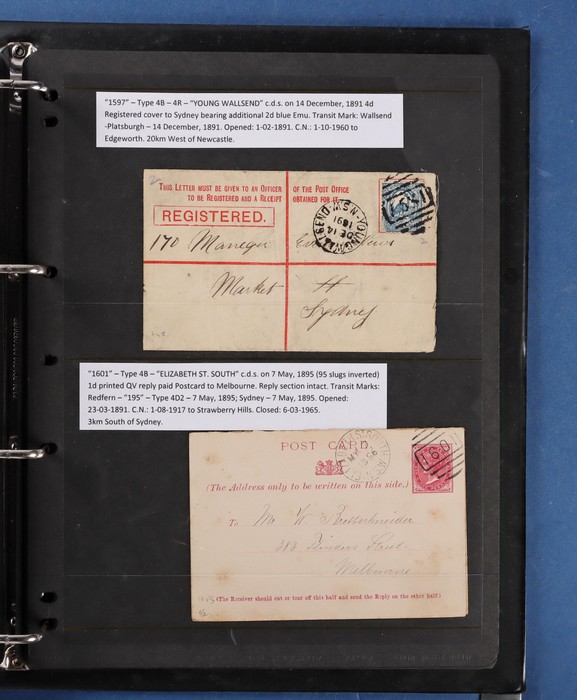 "1597" – Type 4B – 4R – "YOUNG WALLSEND" c.d.s. on 14 December, 1891 4d
Registered cover to Sydney bearing additional 2d blue Emu. Transit Mark: Wallsend
-Platsburgh – 14 December, 1891. Opened: 1-02-1891. C.N.: 1-10-1960 to
Edgeworth. 20km West of Newcastle.
THIS LETTER MUST BE GIVEN TO AN OFFICER OF THE POST OFFICE
TO BE REGISTERED AND A RECEIPT OBTAINED FOR IT.
REGISTERED.
YOUNG WALLSEND N.S.W
DE 14
1891
1597
170 Manager News
Market St
Sydney
"1601" – Type 4B – "ELIZABETH ST. SOUTH" c.d.s. on 7 May, 1895 (95 slugs inverted)
1d printed QV reply paid Postcard to Melbourne. Reply section intact. Transit Marks:
Redfern – "195" – Type 4D2 – 7 May, 1895; Sydney – 7 May, 1895. Opened:
23-03-1891. C.N.: 1-08-1917 to Strawberry Hills. Closed: 6-03-1965.
3km South of Sydney.
POST CARD
(The Address only to be written on this side.)
To Mr W
Melbourne
(The Receiver should cut or tear off this half and send the Reply on the other half)